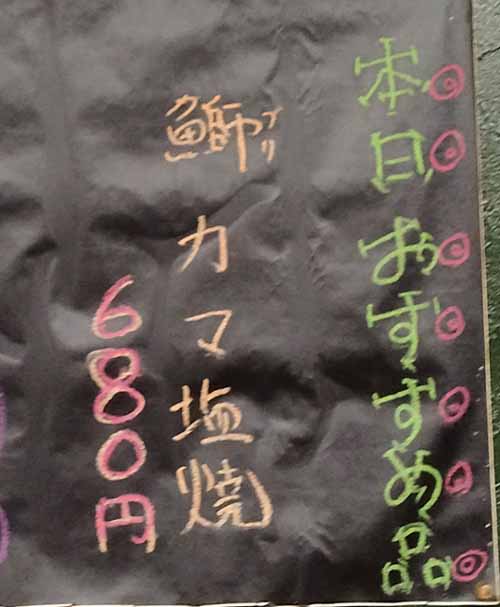 本日おすすめ品
鰤カマ塩焼
ブリ
680円